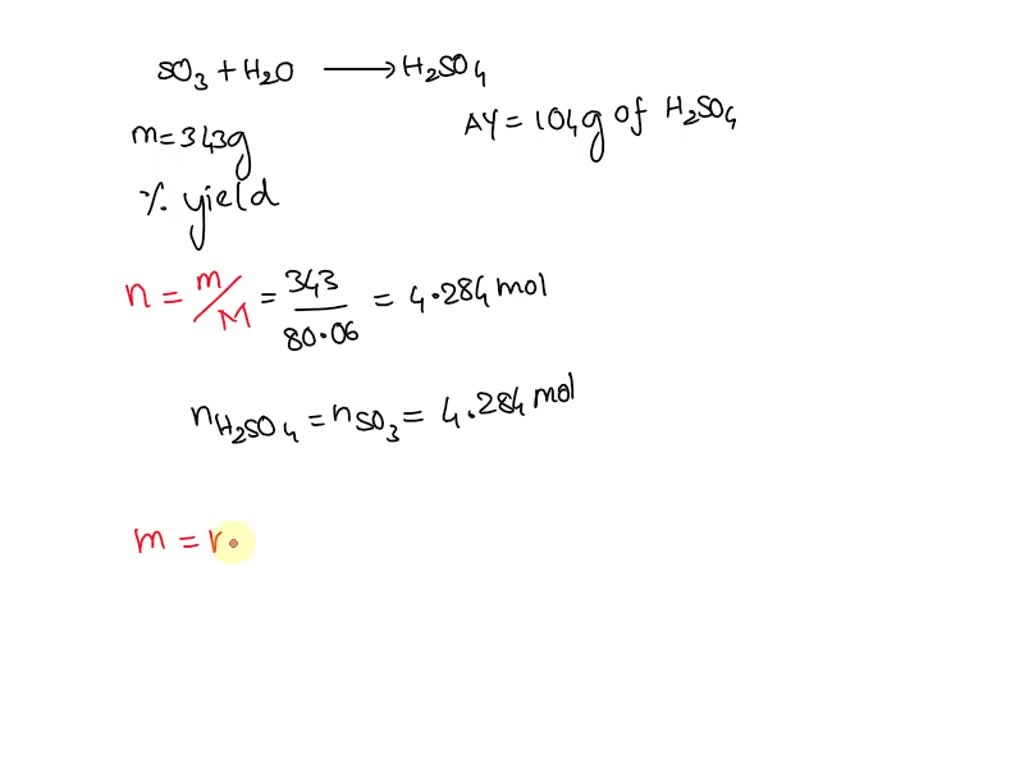 SO3 + H2O ⟶ H2SO4
m=343g
AY = 104g of H2SO4
% yield
n = m/M = 343/80.06 = 4.284 mol
nH2SO4 = nSO3 = 4.284 mol
m =